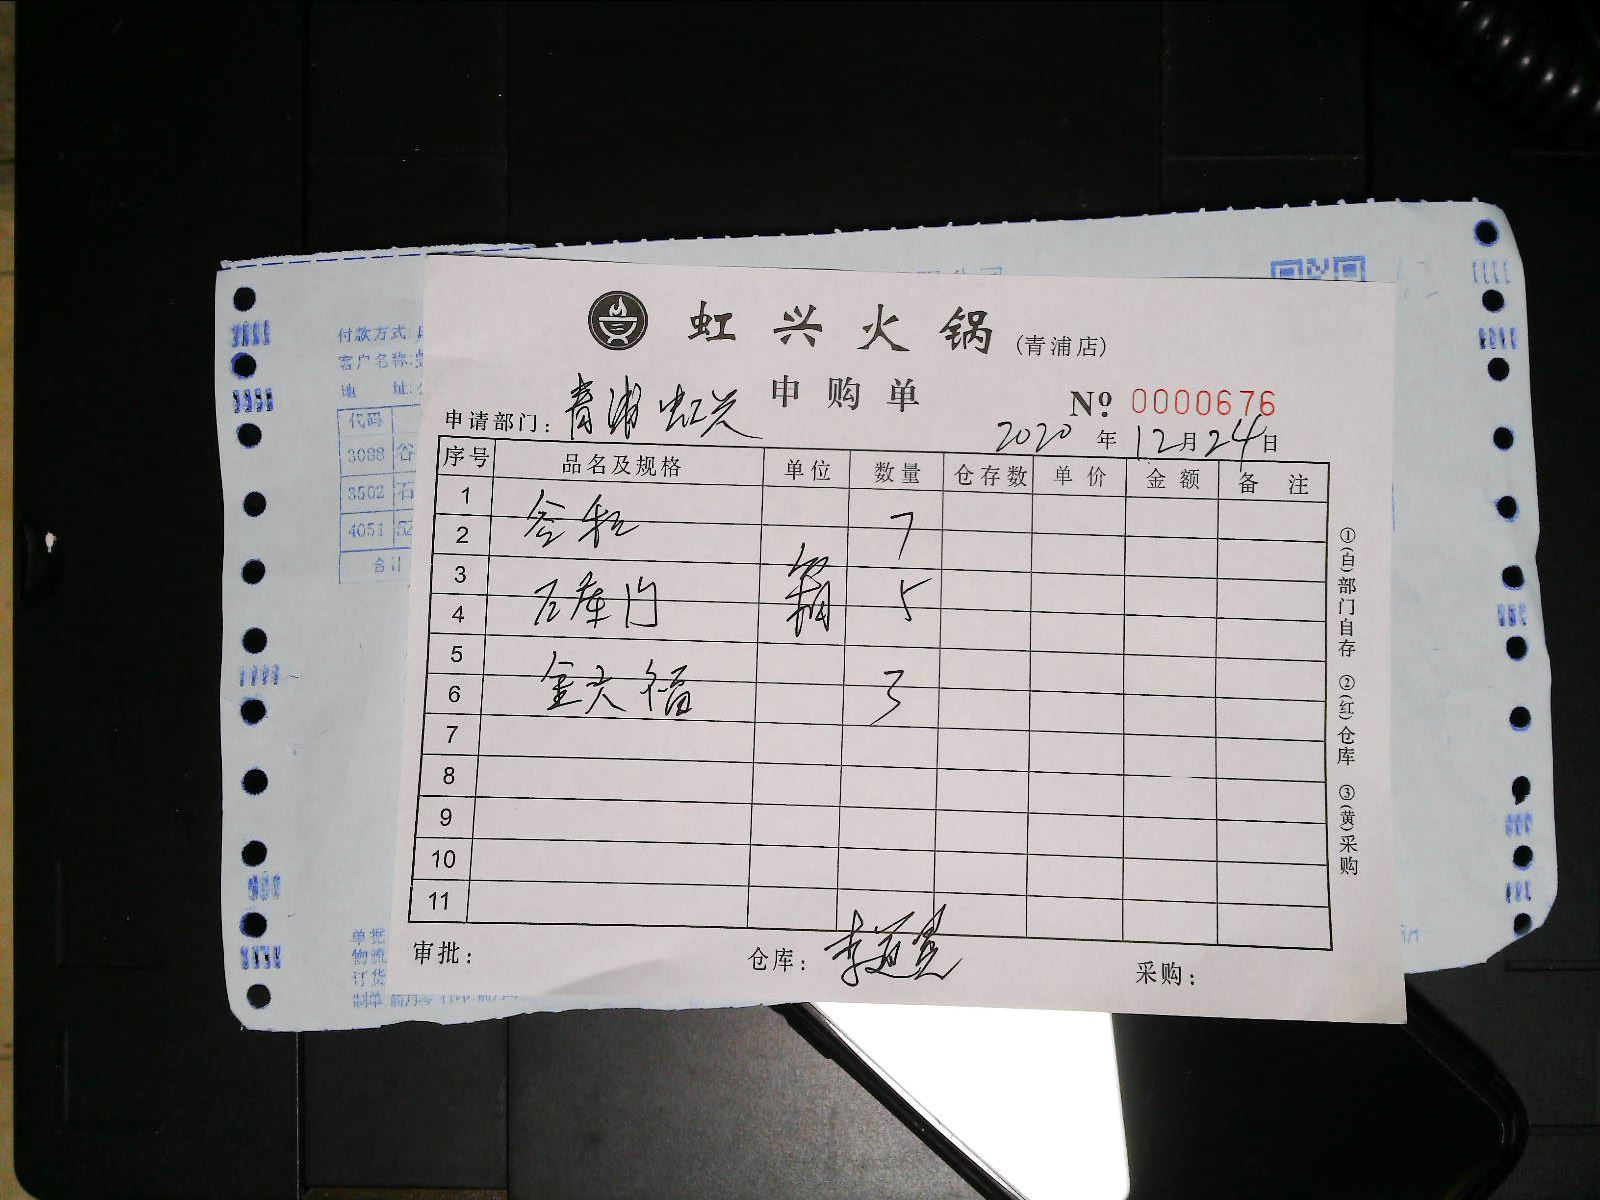 虹兴火锅(青浦店)
申购单
№ 0000676
申请部门: 青浦虹兴
2020年12月24日
序号 品名及规格 单位 数量 仓存数 单价 金额 备注
1
2 谷粒 7
3
4 石库门 箱 5
5
6 金六福 3
7
8
9
10
11
审批: 仓库: 采购:
①(白)部门自存 ②(红)仓库 ③(黄)采购
付款方式:
客户名称:
地 址:
代码
3088 谷
3502 石
4051 52
合计
单据
物流
订货
制单